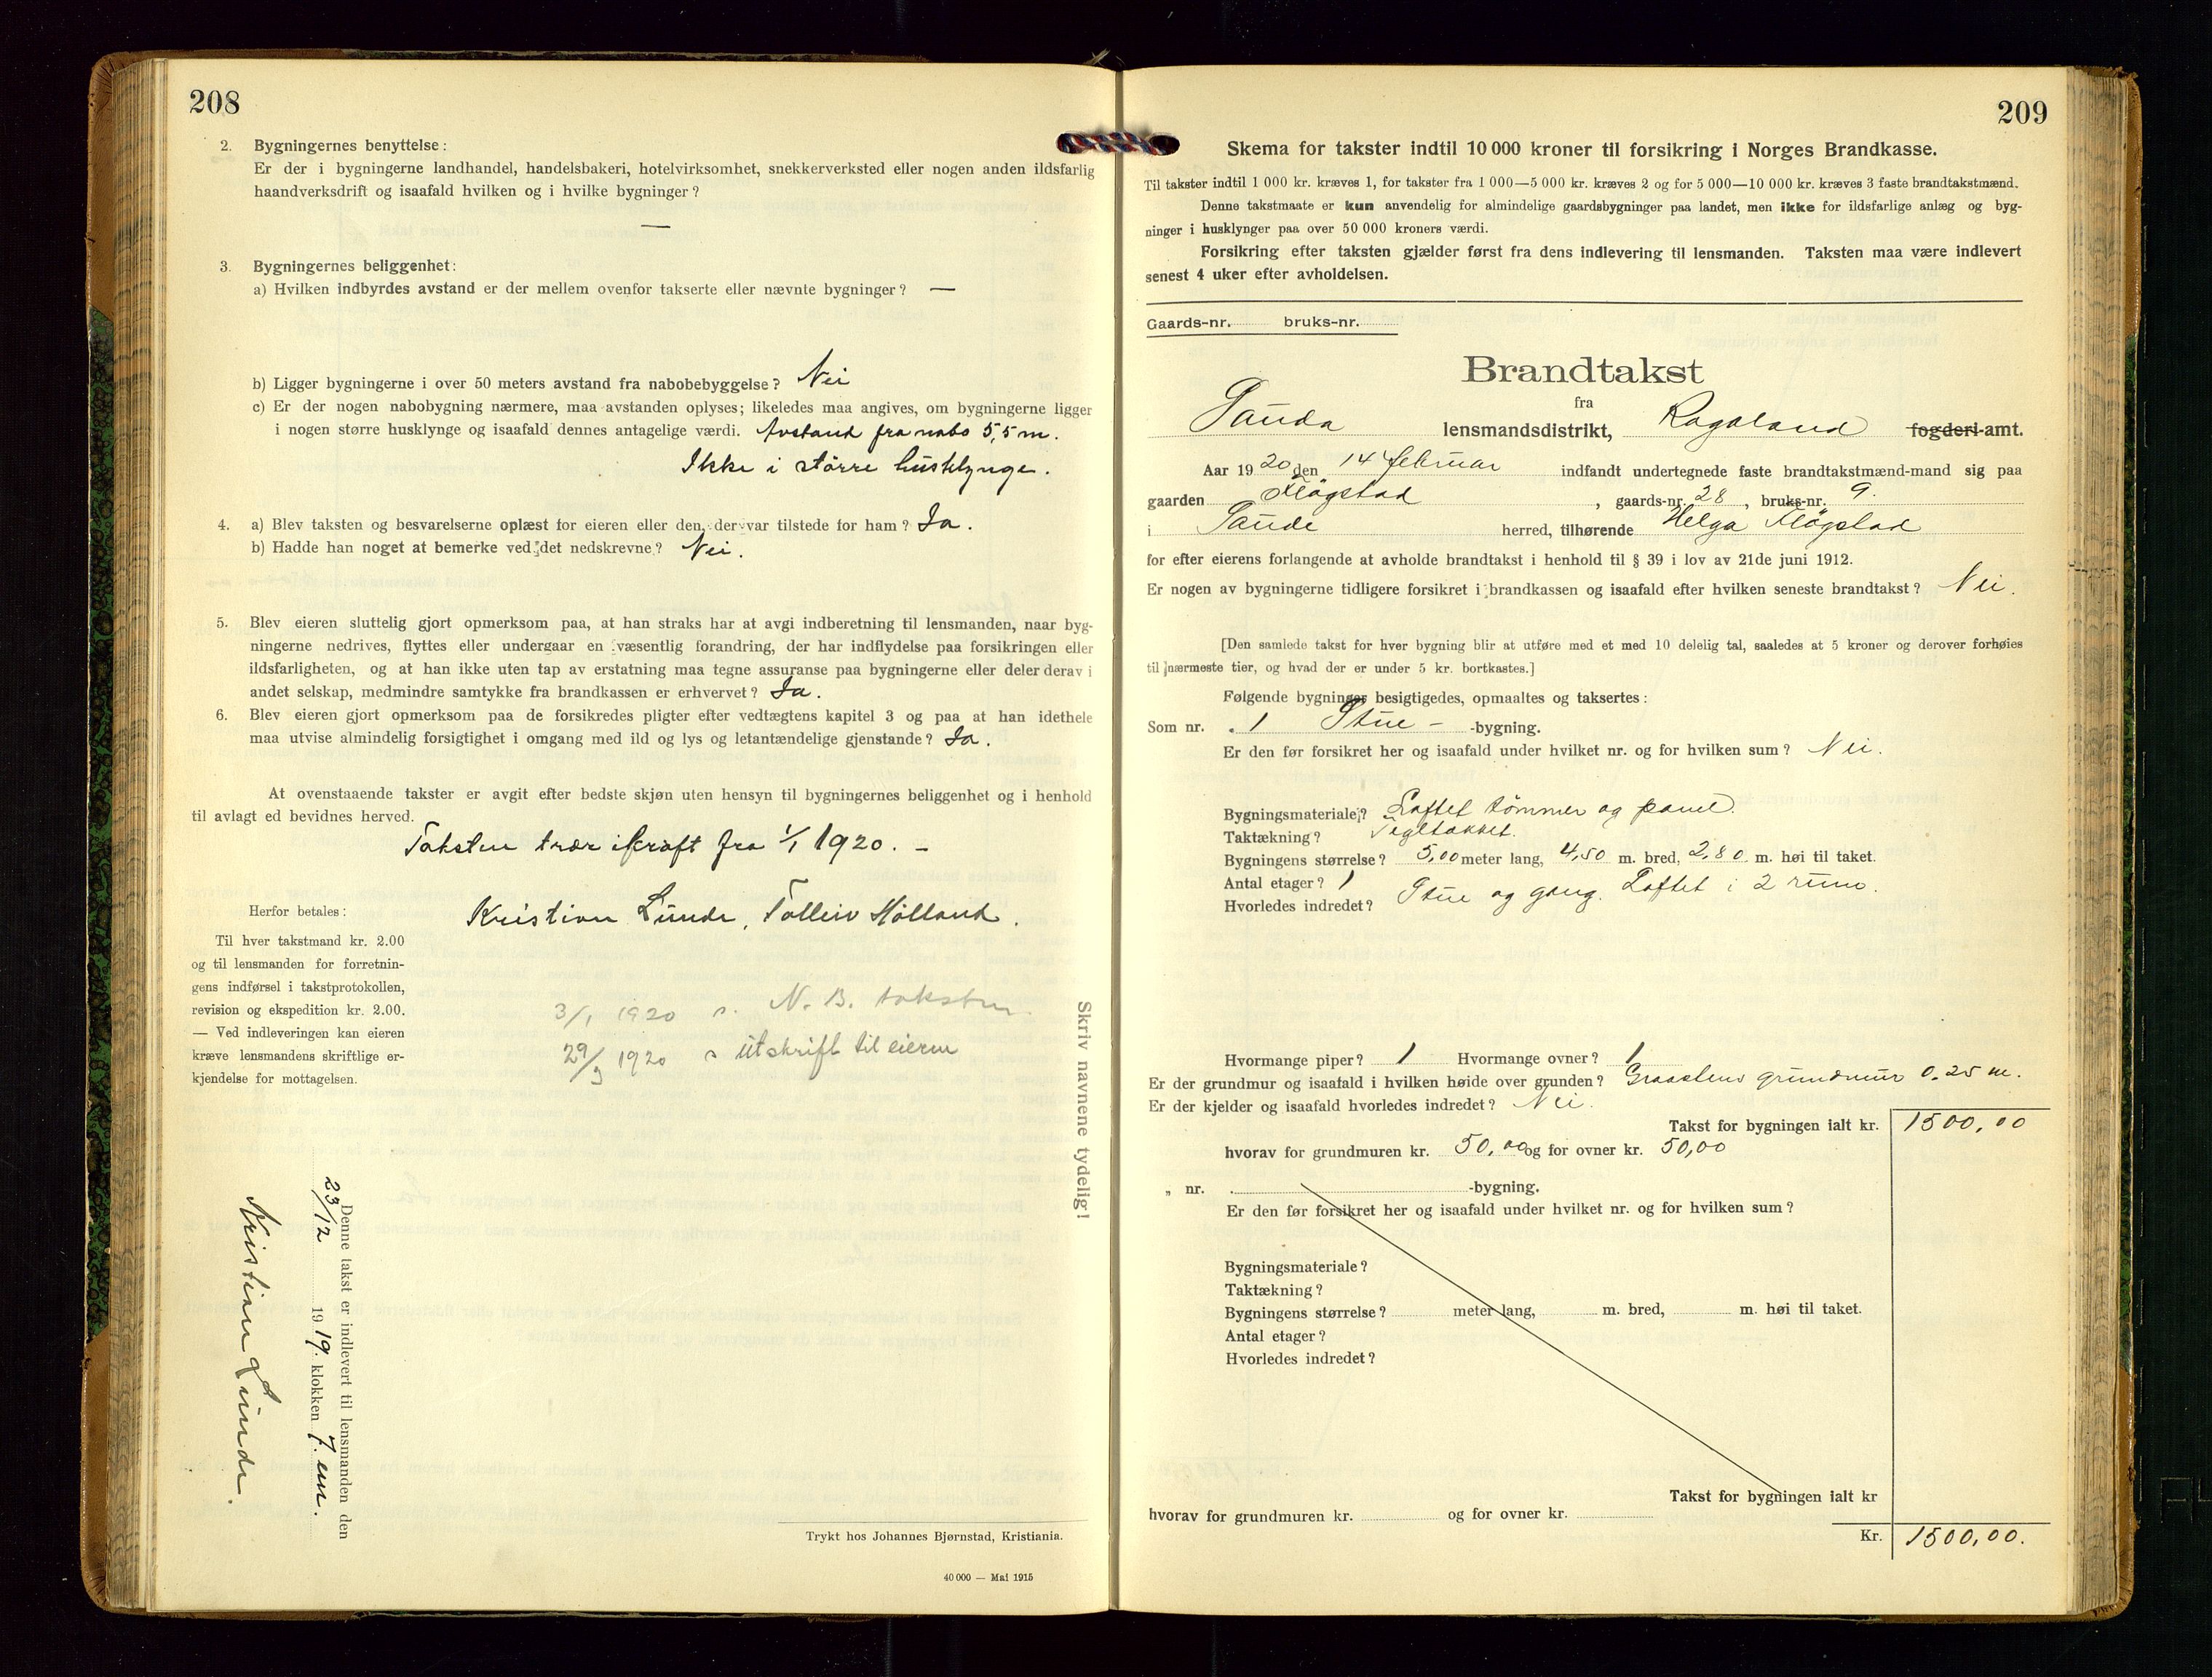 208
2. Bygningernes benyttelse:
Er der i bygningerne landhandel, handelsbakeri, hotelvirksomhet, snekkerverksted eller nogen anden ildsfarlig
haandverksdrift og isaafald hvilken og i hvilke bygninger?
—
3. Bygningernes beliggenhet:
a) Hvilken indbyrdes avstand er der mellem ovenfor takserte eller nævnte bygninger? —
b) Ligger bygningerne i over 50 meters avstand fra nabobebyggelse? Nei
c) Er der nogen nabobygning nærmere, maa avstanden oplyses; likeledes maa angives, om bygningerne ligger
i nogen større husklynge og isaafald dennes antagelige værdi. Avstand fra nabo 5,5 m.
Ikke i större husklynge.
4. a) Blev taksten og besvarelserne oplæst for eieren eller den, der var tilstede for ham? Ja.
b) Hadde han noget at bemerke ved det nedskrevne? Nei.
5. Blev eieren sluttelig gjort opmerksom paa, at han straks har at avgi indberetning til lensmanden, naar byg-
ningerne nedrives, flyttes eller undergaar en væsentlig forandring, der har indflydelse paa forsikringen eller
ildsfarligheten, og at han ikke uten tap av erstatning maa tegne assuranse paa bygningerne eller deler derav i
andet selskap, medmindre samtykke fra brandkassen er erhvervet? Ja.
6. Blev eieren gjort opmerksom paa de forsikredes pligter efter vedtægtens kapitel 3 og paa at han idethele
maa utvise almindelig forsigtighet i omgang med ild og lys og letantændelige gjenstande? Ja.
At ovenstaaende takster er avgit efter bedste skjøn uten hensyn til bygningernes beliggenhet og i henhold
til avlagt ed bevidnes herved.
Taksten trær ikraft fra 1/1 1920. –
Herfor betales:
Kristian Lunde, Tolleiv Hölland.
Til hver takstmand kr. 2.00
og til lensmanden for forretnin-
gens indførsel i takstprotokollen,
revision og ekspedition kr. 2.00.
— Ved indleveringen kan eieren
kræve lensmandens skriftlige er-
kjendelse for mottagelsen.
3/1 1920 s. N. B. taksten
29/3 1920 s utskrift til eieren
Skriv navnene tydelig!
Denne takst er indlevert til lensmanden den
23/12 1919. klokken 7. em.
Kristian Lunde.
Trykt hos Johannes Bjørnstad, Kristiania.
40 000 — Mai 1915
209
Skema for takster indtil 10 000 kroner til forsikring i Norges Brandkasse.
Til takster indtil 1 000 kr. kræves 1, for takster fra 1 000—5 000 kr. kræves 2 og for 5 000—10 000 kr. kræves 3 faste brandtakstmænd.
Denne takstmaate er kun anvendelig for almindelige gaardsbygninger paa landet, men ikke for ildsfarlige anlæg og byg-
ninger i husklynger paa over 50 000 kroners værdi.
Forsikring efter taksten gjælder først fra dens indlevering til lensmanden. Taksten maa være indlevert
senest 4 uker efter avholdelsen.
Gaards-nr. bruks-nr.
Brandtakst
fra
Sauda lensmandsdistrikt, Rogaland fogderi-amt.
Aar 1920 den 14 februar indfandt undertegnede faste brandtakstmænd-mand sig paa
gaarden Flögstad, gaards-nr. 28, bruks-nr. 9.
i Saude herred, tilhørende Helga Flögstad
for efter eierens forlangende at avholde brandtakst i henhold til § 39 i lov av 21de juni 1912.
Er nogen av bygningerne tidligere forsikret i brandkassen og isaafald efter hvilken seneste brandtakst? Nei.
[Den samlede takst for hver bygning blir at utføre med et med 10 delelig tal, saaledes at 5 kroner og derover forhøies
til nærmeste tier, og hvad der er under 5 kr. bortkastes.]
Følgende bygninger besigtigedes, opmaaltes og taksertes:
Som nr. 1 Stue- -bygning.
Er den før forsikret her og isaafald under hvilket nr. og for hvilken sum? Nei.
Bygningsmateriale? Laftet tömmer og panel.
Taktækning? Tegltækket.
Bygningens størrelse? 5,00 meter lang, 4,50 m. bred, 2,80 m. høi til taket.
Antal etager? 1
Hvorledes indredet? Stue og gang. Loftet i 2 rum.
Hvormange piper? 1 Hvormange ovner? 1
Er der grundmur og isaafald i hvilken høide over grunden? Graastens grundmur 0.25 m.
Er der kjelder og isaafald hvorledes indredet? Nei.
Takst for bygningen ialt kr. 1500,00
hvorav for grundmuren kr. 50,00 og for ovner kr. 50,00
„ nr. -bygning.
Er den før forsikret her og isaafald under hvilket nr. og for hvilken sum?
Bygningsmateriale?
Taktækning?
Bygningens størrelse? meter lang, m. bred, m. høi til taket.
Antal etager?
Hvorledes indredet?
Takst for bygningen ialt kr
hvorav for grundmuren kr. og for ovner kr.
Kr. 1500,00.